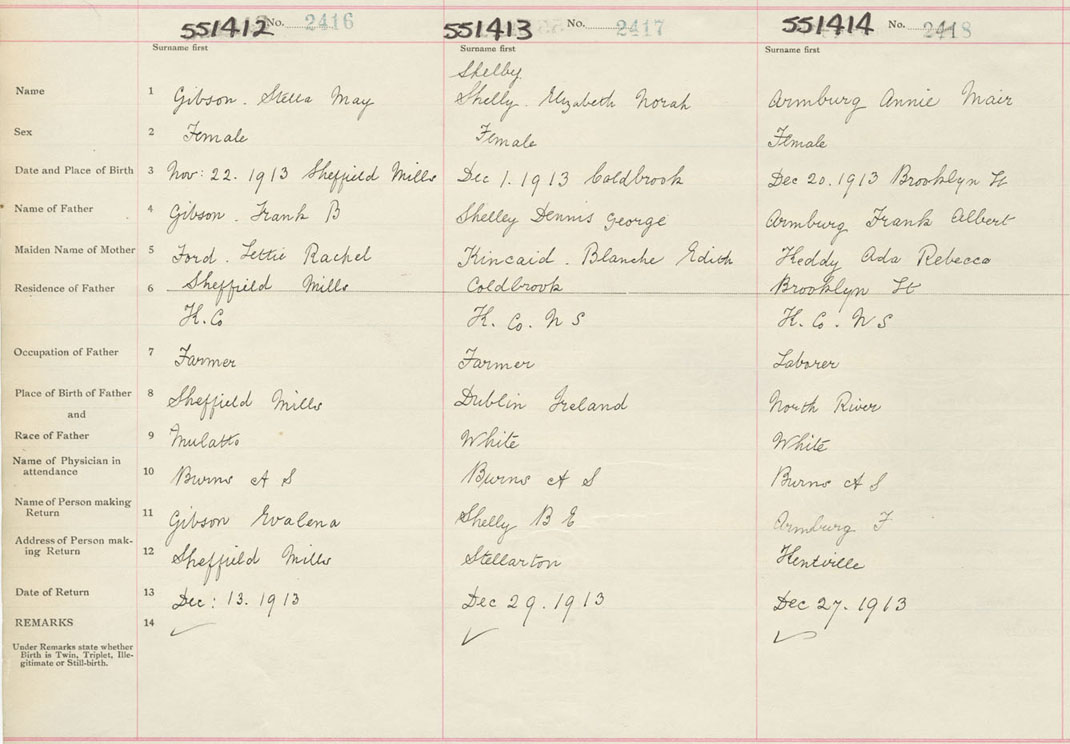 551412 No. 2416 551413 No. 2417 551414 No. 2418
Surname first Surname first Surname first
Shelby
Name 1 Gibson. Stella May Shelly. Elizabeth Norah Armburg Annie Mair
Sex 2 Female Female Female
Date and Place of Birth 3 Nov: 22. 1913 Sheffield Mills Dec 1. 1913 Coldbrook Dec 20. 1913 Brooklyn St
Name of Father 4 Gibson. Frank B Shelley Dennis George Armburg Frank Albert
Maiden Name of Mother 5 Ford. Lettie Rachel Kincaid. Blanche Edith Keddy Ada Rebecca
Residence of Father 6 Sheffield Mills Coldbrook Brooklyn St
K. Co K. Co. N S K. Co. N S
Occupation of Father 7 Farmer Farmer Laborer
Place of Birth of Father 8 Sheffield Mills Dublin Ireland North River
and
Race of Father 9 Mulatto White White
Name of Physician in
attendance 10 Burns A S Burns A S Burns A S
Name of Person making
Return 11 Gibson Evalena Shelly B E Armburg F
Address of Person mak-
ing Return 12 Sheffield Mills Stellarton Kentville
Date of Return 13 Dec: 13. 1913 Dec 29. 1913 Dec 27. 1913
REMARKS 14
Under Remarks state whether
Birth is Twin, Triplet, Ille-
gitimate or Still-birth.